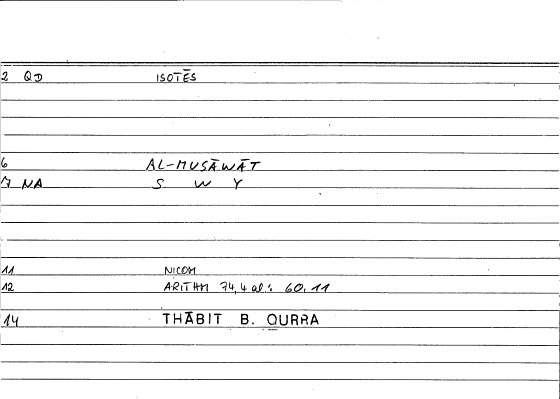 2 QD ISOTĒS
6 AL-MUSĀWĀT
7 NA S W Y
11 NICOM
12 ARITHM 74,4 al: 60.11
14 THĀBIT B. QURRA